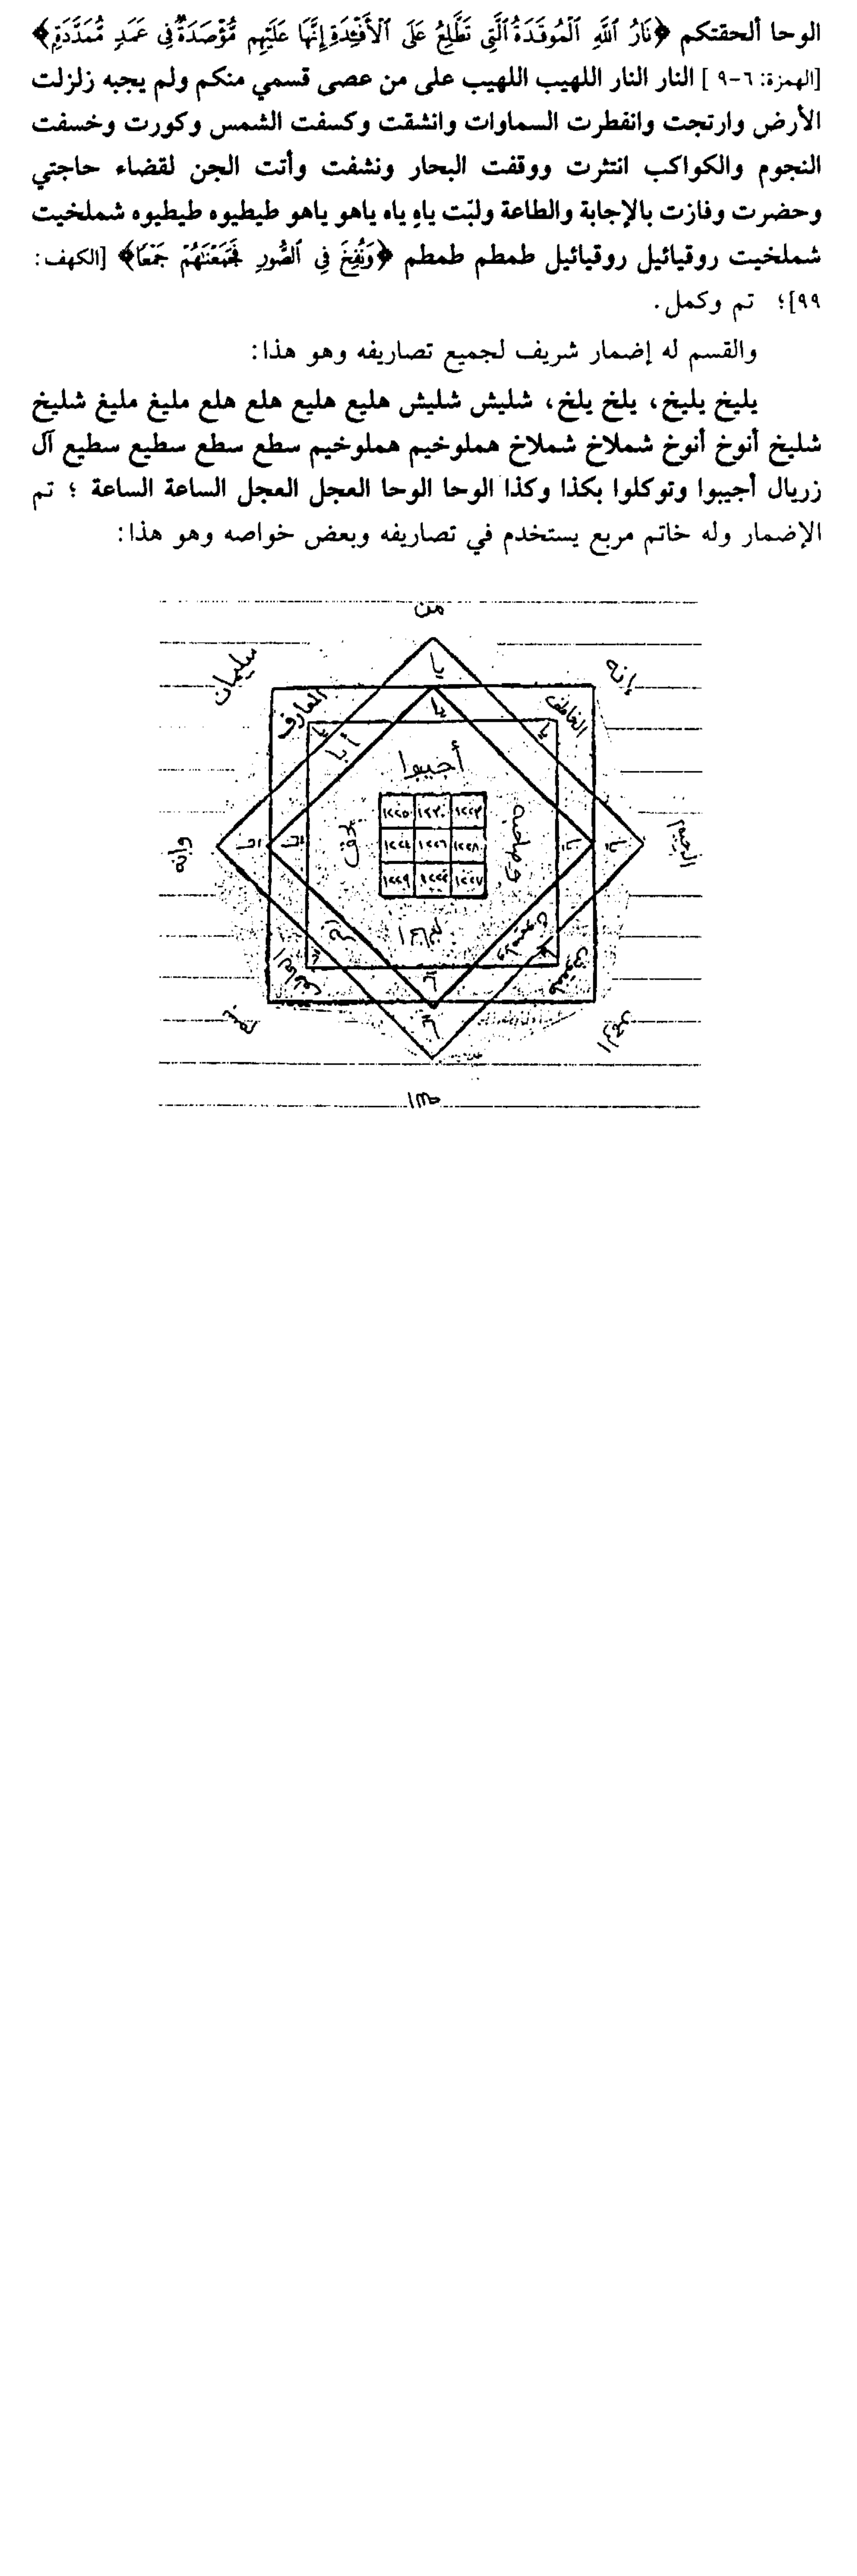 الوحا ألحقتكم ﴿نَارُ ٱللَّهِ ٱلْمُوقَدَةُ ٱلَّتِى تَطَّلِعُ عَلَى ٱلْأَفْـِٔدَةِ إِنَّهَا عَلَيْهِم مُّؤْصَدَةٌ فِى عَمَدٍ مُّمَدَّدَةٍ﴾
[الهمزة: ٦-٩] النار النار اللهيب اللهيب على من عصى قسمي منكم ولم يجبه زلزلت
الأرض وارتجت وانفطرت السماوات وانشقت وكسفت الشمس وكورت وخسفت
النجوم والكواكب انتثرت ووقفت البحار ونشفت وأتت الجن لقضاء حاجتي
وحضرت وفازت بالإجابة والطاعة ولبّت ياهٍ ياه ياهو ياهو طيطيوه طيطيوه شملخيت
شملخيت روقيائيل روقيائيل طمطم طمطم ﴿وَنُفِخَ فِى ٱلصُّورِ فَجَمَعْنَـٰهُمْ جَمْعًا﴾ [الكهف:
٩٩]؛ تم وكمل.
والقسم له إضمار شريف لجميع تصاريفه وهو هذا:
يليخ يليخ، يلخ يلخ، شليش شليش هليع هليع هلع هلع مليغ مليغ شليخ
شليخ أنوخ أنوخ شملاخ شملاخ هملوخيم هملوخيم سطع سطع سطيع سطيع آل
زريال أجيبوا وتوكلوا بكذا وكذا الوحا الوحا العجل العجل الساعة الساعة ؛ تم
الإضمار وله خاتم مربع يستخدم في تصاريفه وبعض خواصه وهو هذا:
من
سليمان
إنه
يا
المعارف
يا
يا
يا
أجيبوا
١٢٢٥ ١٢٣٠ ١٢٢٣
وإنه
يا
يا
بحق
١٢٢٤ ١٢٢٦ ١٢٢٨
يا
يا
الرحيم
١٢٢٩ ١٢٢٢ ١٢٢٧
يا
يا
الرحمن
بسم
الله